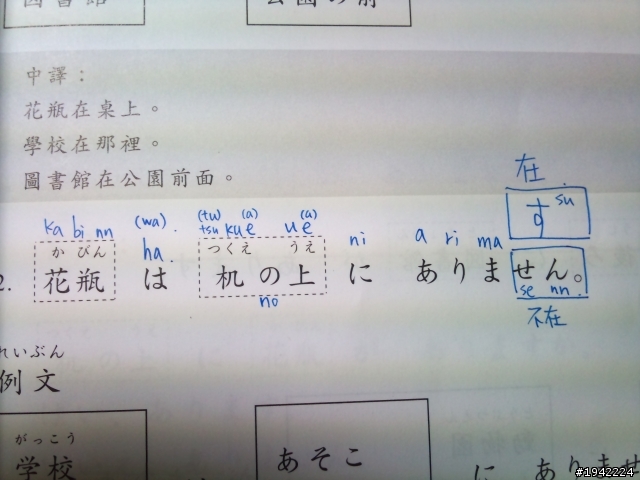 圖書館
公園の前
中譯：
花瓶在桌上。
學校在那裡。
圖書館在公園前面。
在.
す su
(wa).
(tu) (a) (a)
ka bi nn ha. tsu ku e u e ni a ri ma
か びん つくえ うえ
2. 花瓶 は 机の上 に ありません。
no se nn.
不在
れいぶん
例文
がっこう
学校 あそこ に ありませ
#1942224